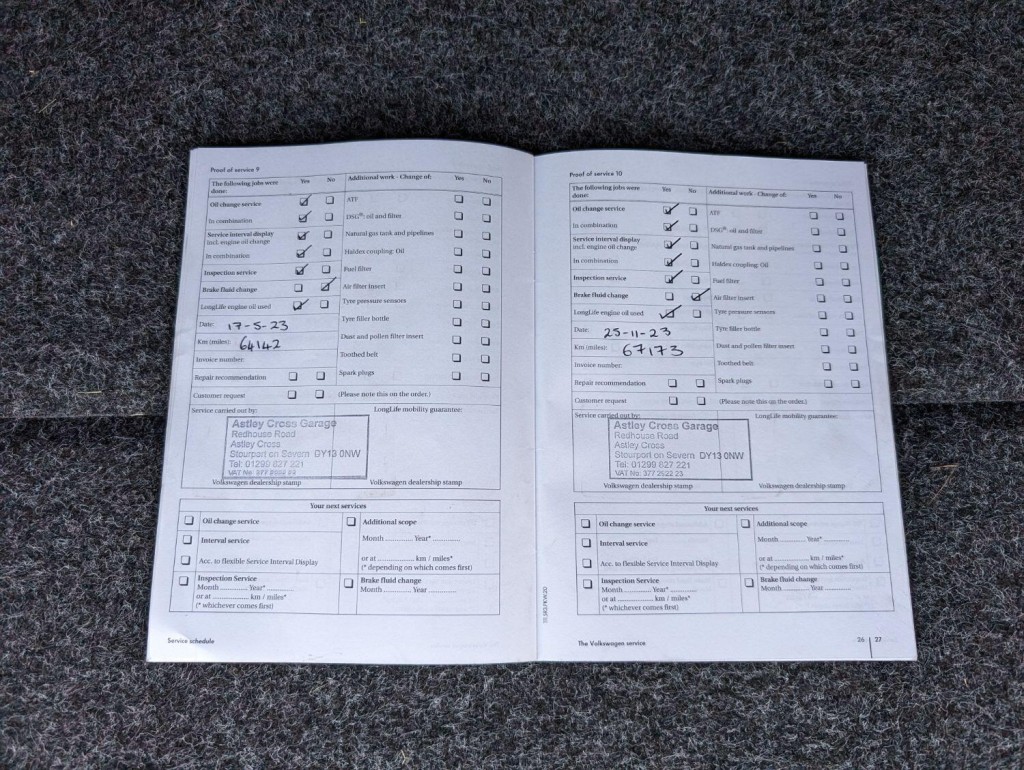 Proof of service 9
The following jobs were done: Yes No Additional work - Change of: Yes No
Oil change service ATF
In combination DSG®: oil and filter
Service interval display incl. engine oil change Natural gas tank and pipelines
In combination Haldex coupling: Oil
Inspection service Fuel filter
Brake fluid change Air filter insert
LongLife engine oil used Tyre pressure sensors
Date: 17-5-23 Tyre filler bottle
Km (miles): 64142 Dust and pollen filter insert
Invoice number: Toothed belt
Repair recommendation Spark plugs
Customer request (Please note this on the order.)
Service carried out by: LongLife mobility guarantee:
Astley Cross Garage
Redhouse Road
Astley Cross
Stourport on Severn DY13 0NW
Tel: 01299 827 221
VAT No: 377 2522 23
Volkswagen dealership stamp Volkswagen dealership stamp
Your next services
Oil change service Additional scope
Interval service Month Year*
Acc. to flexible Service Interval Display or at km / miles*
(* depending on which comes first)
Inspection Service Brake fluid change
Month Year* Month Year
or at km / miles*
(* whichever comes first)
Service schedule
Proof of service 10
The following jobs were done: Yes No Additional work - Change of: Yes No
Oil change service ATF
In combination DSG®: oil and filter
Service interval display incl. engine oil change Natural gas tank and pipelines
In combination Haldex coupling: Oil
Inspection service Fuel filter
Brake fluid change Air filter insert
LongLife engine oil used Tyre pressure sensors
Date: 25-11-23 Tyre filler bottle
Km (miles): 67173 Dust and pollen filter insert
Invoice number: Toothed belt
Repair recommendation Spark plugs
Customer request (Please note this on the order.)
Service carried out by: LongLife mobility guarantee:
Astley Cross Garage
Redhouse Road
Astley Cross
Stourport on Severn DY13 0NW
Tel: 01299 827 221
VAT No: 377 2522 23
Volkswagen dealership stamp Volkswagen dealership stamp
Your next services
Oil change service Additional scope
Interval service Month Year*
Acc. to flexible Service Interval Display or at km / miles*
(* depending on which comes first)
Inspection Service Brake fluid change
Month Year* Month Year
or at km / miles*
(* whichever comes first)
The Volkswagen service 26 27